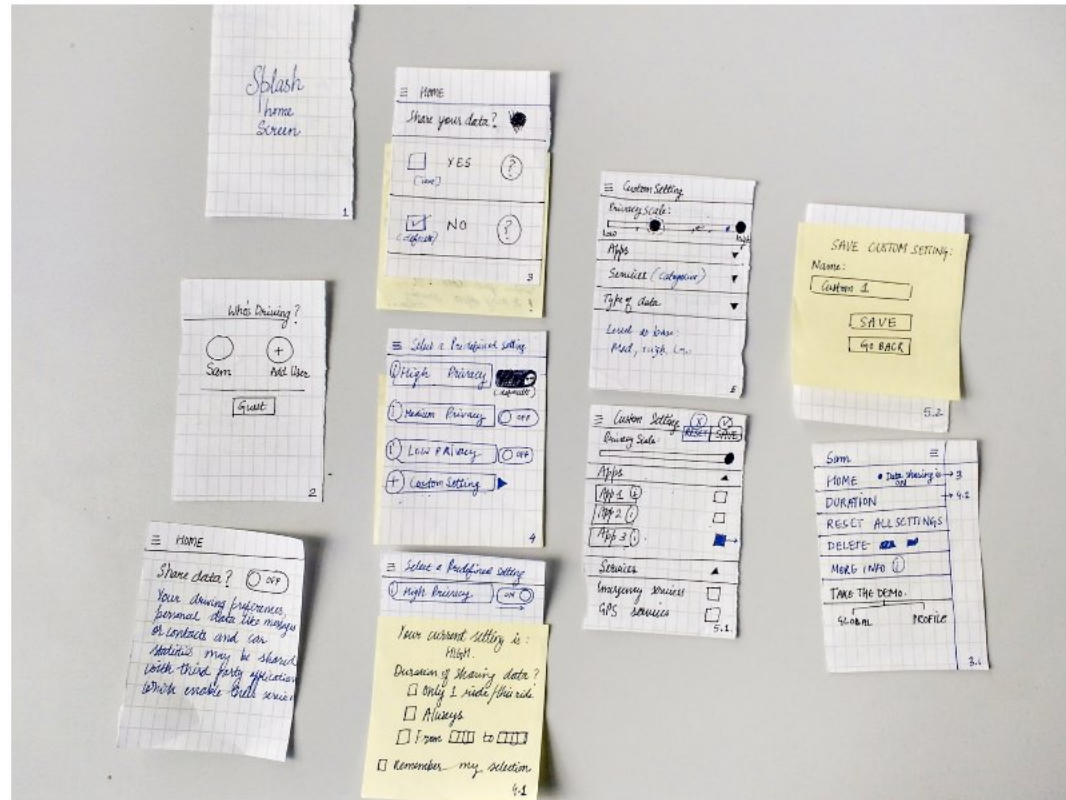 Splash
home
Screen
1
Who's Driving?
Sam
+
Add User
Guest
2
HOME
Share data?
OFF
Your driving preferences,
personal data like messages
or contacts and car
statistics may be shared
with third party application
which enable their service
HOME
Share your data?
YES
?
NO
?
(default)
3
Select a Predefined setting
i High Privacy
(default)
i Medium Privacy
OFF
i Low PRIVACY
OFF
+ Custom Setting
4
Select a Predefined setting
i High Privacy
ON
Your current setting is:
HIGH.
Duration of sharing data?
Only 1 ride/this ride
Always
From to
Remember my selection
4.1
Custom Setting
Privacy Scale:
Low
high
Apps
Services (Categories)
Type of data
Level as base:
Med, high, Low
5
Custom Setting
X
RESET
SAVE
Privacy Scale:
Apps
App 1 i
App 2 i
App 3 i
Services
Emergency services
GPS services
5.1
SAVE CUSTOM SETTING:
Name:
Custom 1
SAVE
GO BACK
5.2
Sam
HOME • Data sharing is ON → 3
DURATION → 4.1
RESET ALL SETTINGS
DELETE
MORE INFO i
TAKE THE DEMO.
GLOBAL PROFILE